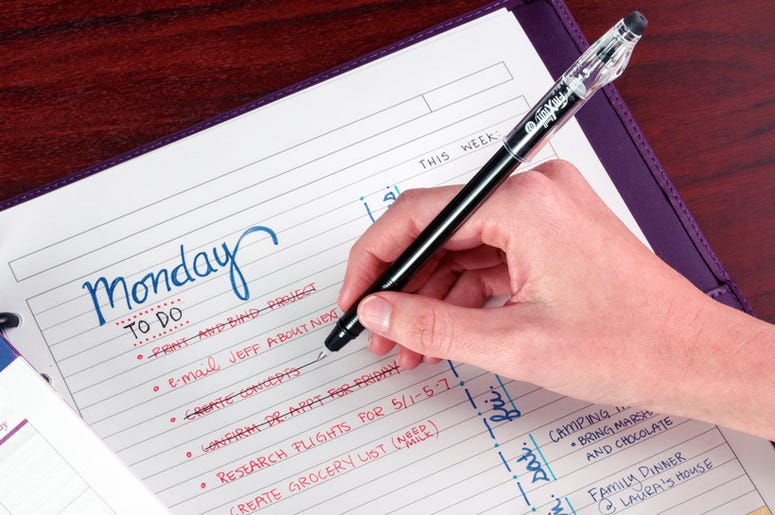 THIS WEEK:
Monday
TO DO
• PRINT AND BIND PROJECT
• E-MAIL JEFF ABOUT NEXT
• CREATE CONCEPTS
• CONFIRM DR APPT FOR FRIDAY
• RESEARCH FLIGHTS FOR 5/1-5-7
CREATE GROCERY LIST (NEED
MILK)
Fri.
Sat.
CAMPING
• BRING MARSH
AND CHOCOLATE
FAMILY DINNER
@ LAURA'S HOUSE